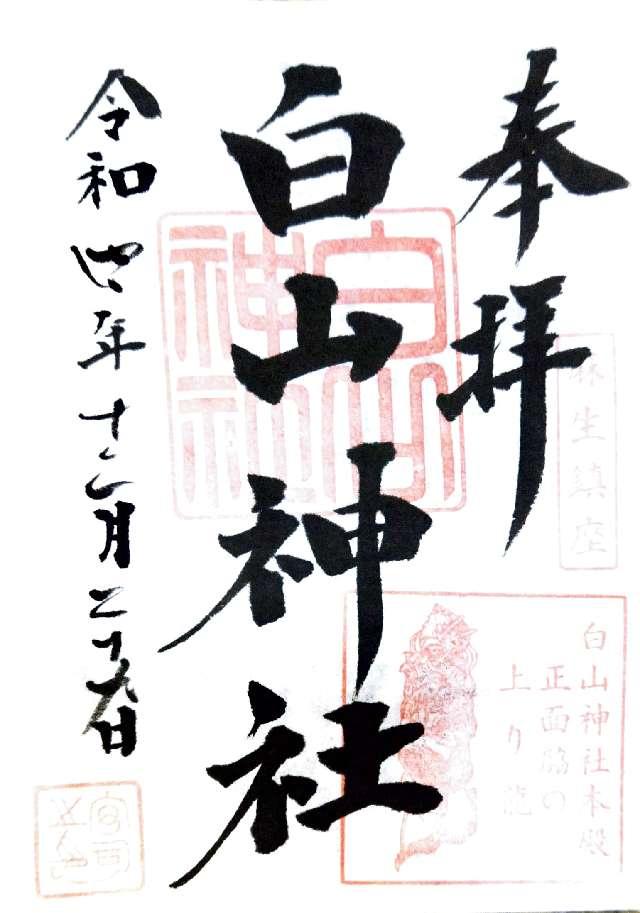 奉拝
麻生鎮座
白山神社本殿
正面脇の
上り龍
白山神社
白山
神社
令和四年十二月二十九日